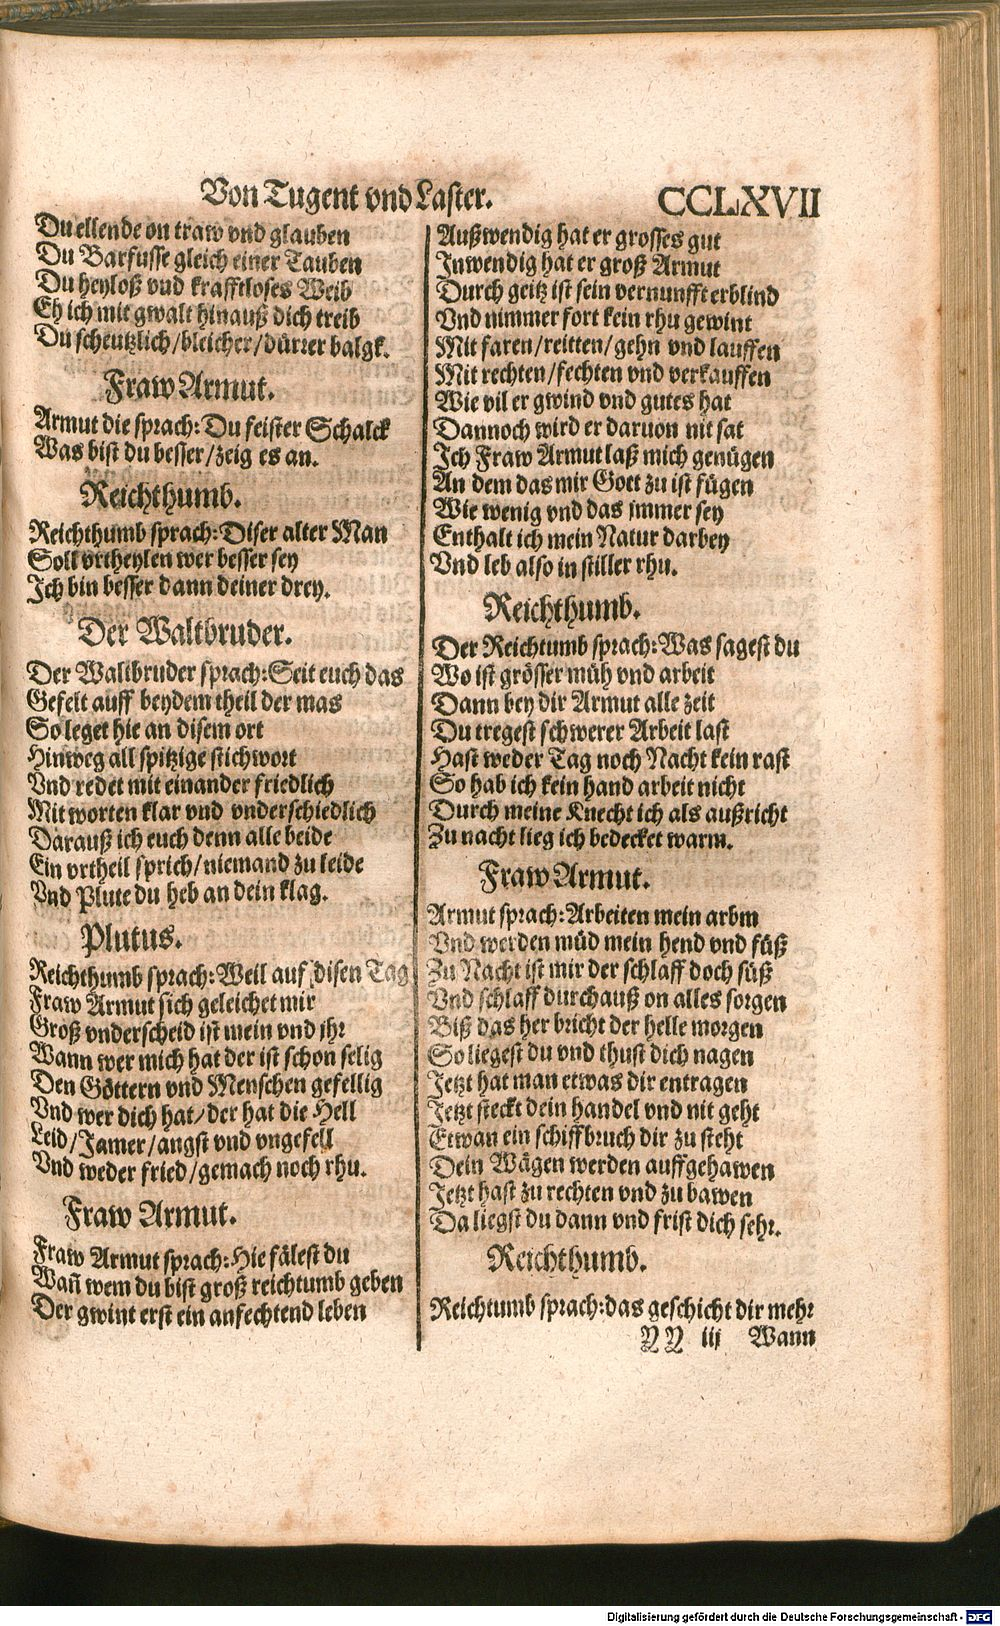 Von Tugent vnd Laster. CCLXVII
Du ellende on traw vnd glauben
Du Barfusse gleich einer Tauben
Du heyloß vnd krafftloses Weib
Eh ich mit gwalt hinauß dich treib
Du scheutzlich/bleicher/dürrer balgk.
Fraw Armut.
Armut die sprach: Du feister Schalck
Was bist du besser/zeig es an.
Reichthumb.
Reichthumb sprach: Diser alter Man
Soll vrtheylen wer besser sey
Ich bin besser dann deiner drey.
Der Waltbruder.
Der Waltbruder sprach: Seit euch das
Gefelt auff beydem theil der mas
So leget hie an disem ort
Hinweg all spitzige stichwort
Vnd redet mit einander friedlich
Mit worten klar vnd vnderschiedlich
Darauß ich euch denn alle beide
Ein vrtheil sprich/niemand zu leide
Vnd Plute du heb an dein klag.
Plutus.
Reichthumb sprach: Weil auf disen Tag
Fraw Armut sich geleichet mir
Groß vnderscheid ist mein vnd jhr
Wann wer mich hat der ist schon selig
Den Göttern vnd Menschen gefellig
Vnd wer dich hat/der hat die Hell
Leid/Jamer/angst vnd vngefell
Vnd weder fried/gemach noch rhu.
Fraw Armut.
Fraw Armut sprach: Hie fälest du
Wañ wem du bist groß reichtumb geben
Der gwint erst ein anfechtend leben
Außwendig hat er grosses gut
Inwendig hat er groß Armut
Durch geitz ist sein vernunfft erblind
Vnd nimmer fort kein rhu gewint
Mit faren/reitten/gehn vnd lauffen
Mit rechten/fechten vnd verkauffen
Wie vil er gwind vnd gutes hat
Dannoch wird er daruon nit sat
Ich Fraw Armut laß mich genügen
An dem das mir Gott zu ist fügen
Wie wenig vnd das jmmer sey
Enthalt ich mein Natur darbey
Vnd leb also in stiller rhu.
Reichthumb.
Der Reichtumb sprach: Was sagest du
Wo ist grösser müh vnd arbeit
Dann bey dir Armut alle zeit
Du tregest schwerer Arbeit last
Hast weder Tag noch Nacht kein rast
So hab ich kein hand arbeit nicht
Durch meine Knecht ich als außricht
Zu nacht lieg ich bedecket warm.
Fraw Armut.
Armut sprach: Arbeiten mein arbm
Vnd werden müd mein hend vnd füß
Zu Nacht ist mir der schlaff doch süß
Vnd schlaff durchauß on alles sorgen
Biß das her bricht der helle morgen
So liegest du vnd thust dich nagen
Jetzt hat man etwas dir entragen
Jetzt steckt dein handel vnd nit geht
Etwan ein schiffbruch dir zu steht
Dein Wägen werden auffgehawen
Jetzt hast zu rechten vnd zu bawen
Da liegst du dann vnd frist dich sehr.
Reichthumb.
Reichtumb sprach: das geschicht dir mehr
YY iij Wann
Digitalisierung gefördert durch die Deutsche Forschungsgemeinschaft - DFG